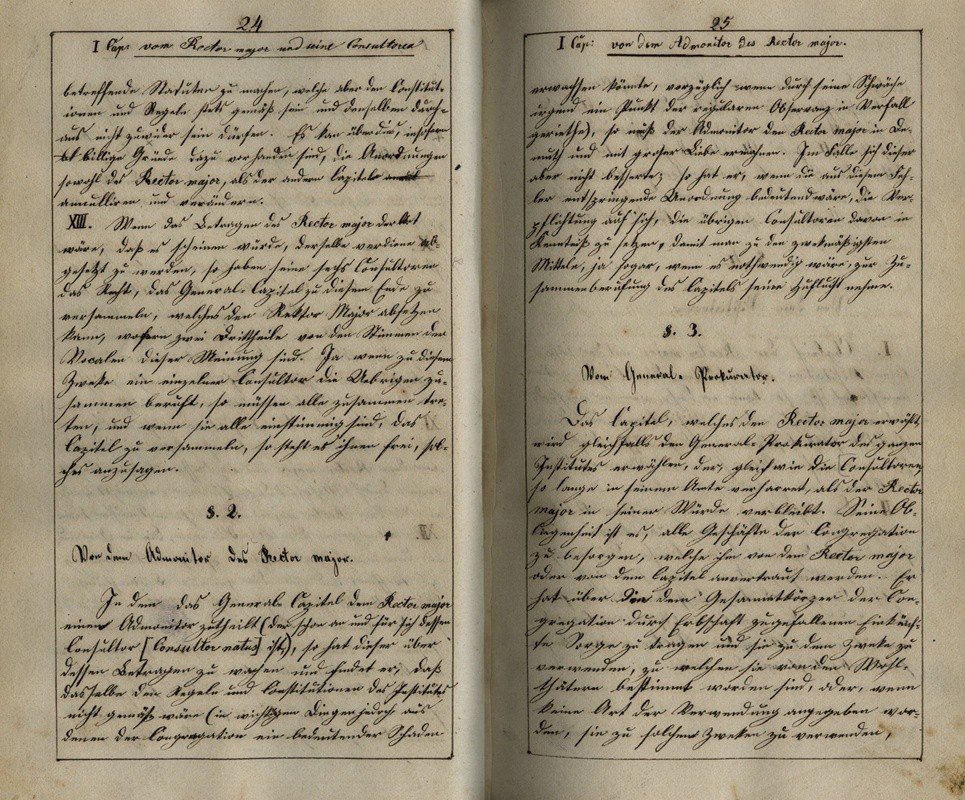 24
I Cap: vom Rector major und seine Consultoren
betreffende Statuten zu machen, welche aber den Constitut-
ionen und Regeln stets gemäß sein und denselben durch-
aus nicht zuwider sein dürfen. Es kan überdies, insofern
billige Gründe dazu vorhanden sind, die Anordnungen
sowohl des Rector major, als der andern Capitels
annulliren und verändern.
XIII. Wenn das Betragen des Rector major der Art
wäre, daß es scheinen würde, derselbe verdiene ab-
gesetzt zu werden, so haben seine sechs Consultoren
das Recht, das General-Capitel zu diesem Ende zu
versammeln, welches den Rektor Major absetzen
kann, wofern zwei Drittheile von den Stimmen der
Vocalen dieser Meinung sind. Ja wenn zu diesem
Zweke ein einzelner Consultor die Uebrigen zu-
sammen beruft, so müssen alle zusammen tre-
ten, und wenn sie alle einstimmig sind, das
Capitel zu versammeln, so steht es ihnen frei, sol-
ches anzusagen.
§. 2.
Von dem Admonitor des Rector major.
In dem das General-Capitel dem Rector major
einen Admonitor zutheilt (der schon an und für sich dessen
Consultor [Consultor natus] ist), so hat dieser über
dessen Betragen zu wachen und findet er, daß
dasselbe den Regeln und Constitutionen des Institutes
nicht gemäß wäre (in wichtigen Dingen jedoch aus
denen der Congregation ein bedeutender Schaden
25
I Cap: von dem Admonitor des Rector major.
erwachsen könnte, vorzüglich wenn durch seine Schwäche
irgend ein Punkt der regularen Observanz in Verfall
geriethe), so muß der Admonitor den Rector major in De-
muth und mit großer Liebe ermahnen. Im Falle sich dieser
aber nicht besserte; so hat er, wenn die aus diesem Feh-
ler entspringende Unordnung bedeutend wäre, die Ver-
pflichtung auf sich, die übrigen Consultoren davon in
Kenntniß zu setzen, damit man zu den zwekmäßigsten
Mitteln, ja sogar, wenn es nothwendig wäre, zur Zu-
sammenberufung des Capitels seine Zuflucht nehme.
§. 3.
Vom General-Prokurator.
Das Capitel, welches den Rector major erwählt,
wird gleichfalls den General-Prokurator des ganzen
Institutes erwählen, der, gleich wie die Consultoren,
so lange in seinem Amte verharret, als der Rector
major in seiner Würde verbleibt. Seine Ob-
liegenheit ist es, alle Geschäfte der Congregation
zu besorgen, welche ihm von dem Rector major
oder von dem Capitel anvertraut werden. Er
hat über den dem Gesammtkörper der Con-
gregation durch Erbschaft zugefallenen Einkünf-
te Sorge zu tragen und sie zu dem Zweke zu
verwenden, zu welchem sie von den Wohl-
thätern bestimmt worden sind, oder, wenn
keine Art der Verwendung angegeben wor-
den, sie zu solchen Zweken zu verwenden,